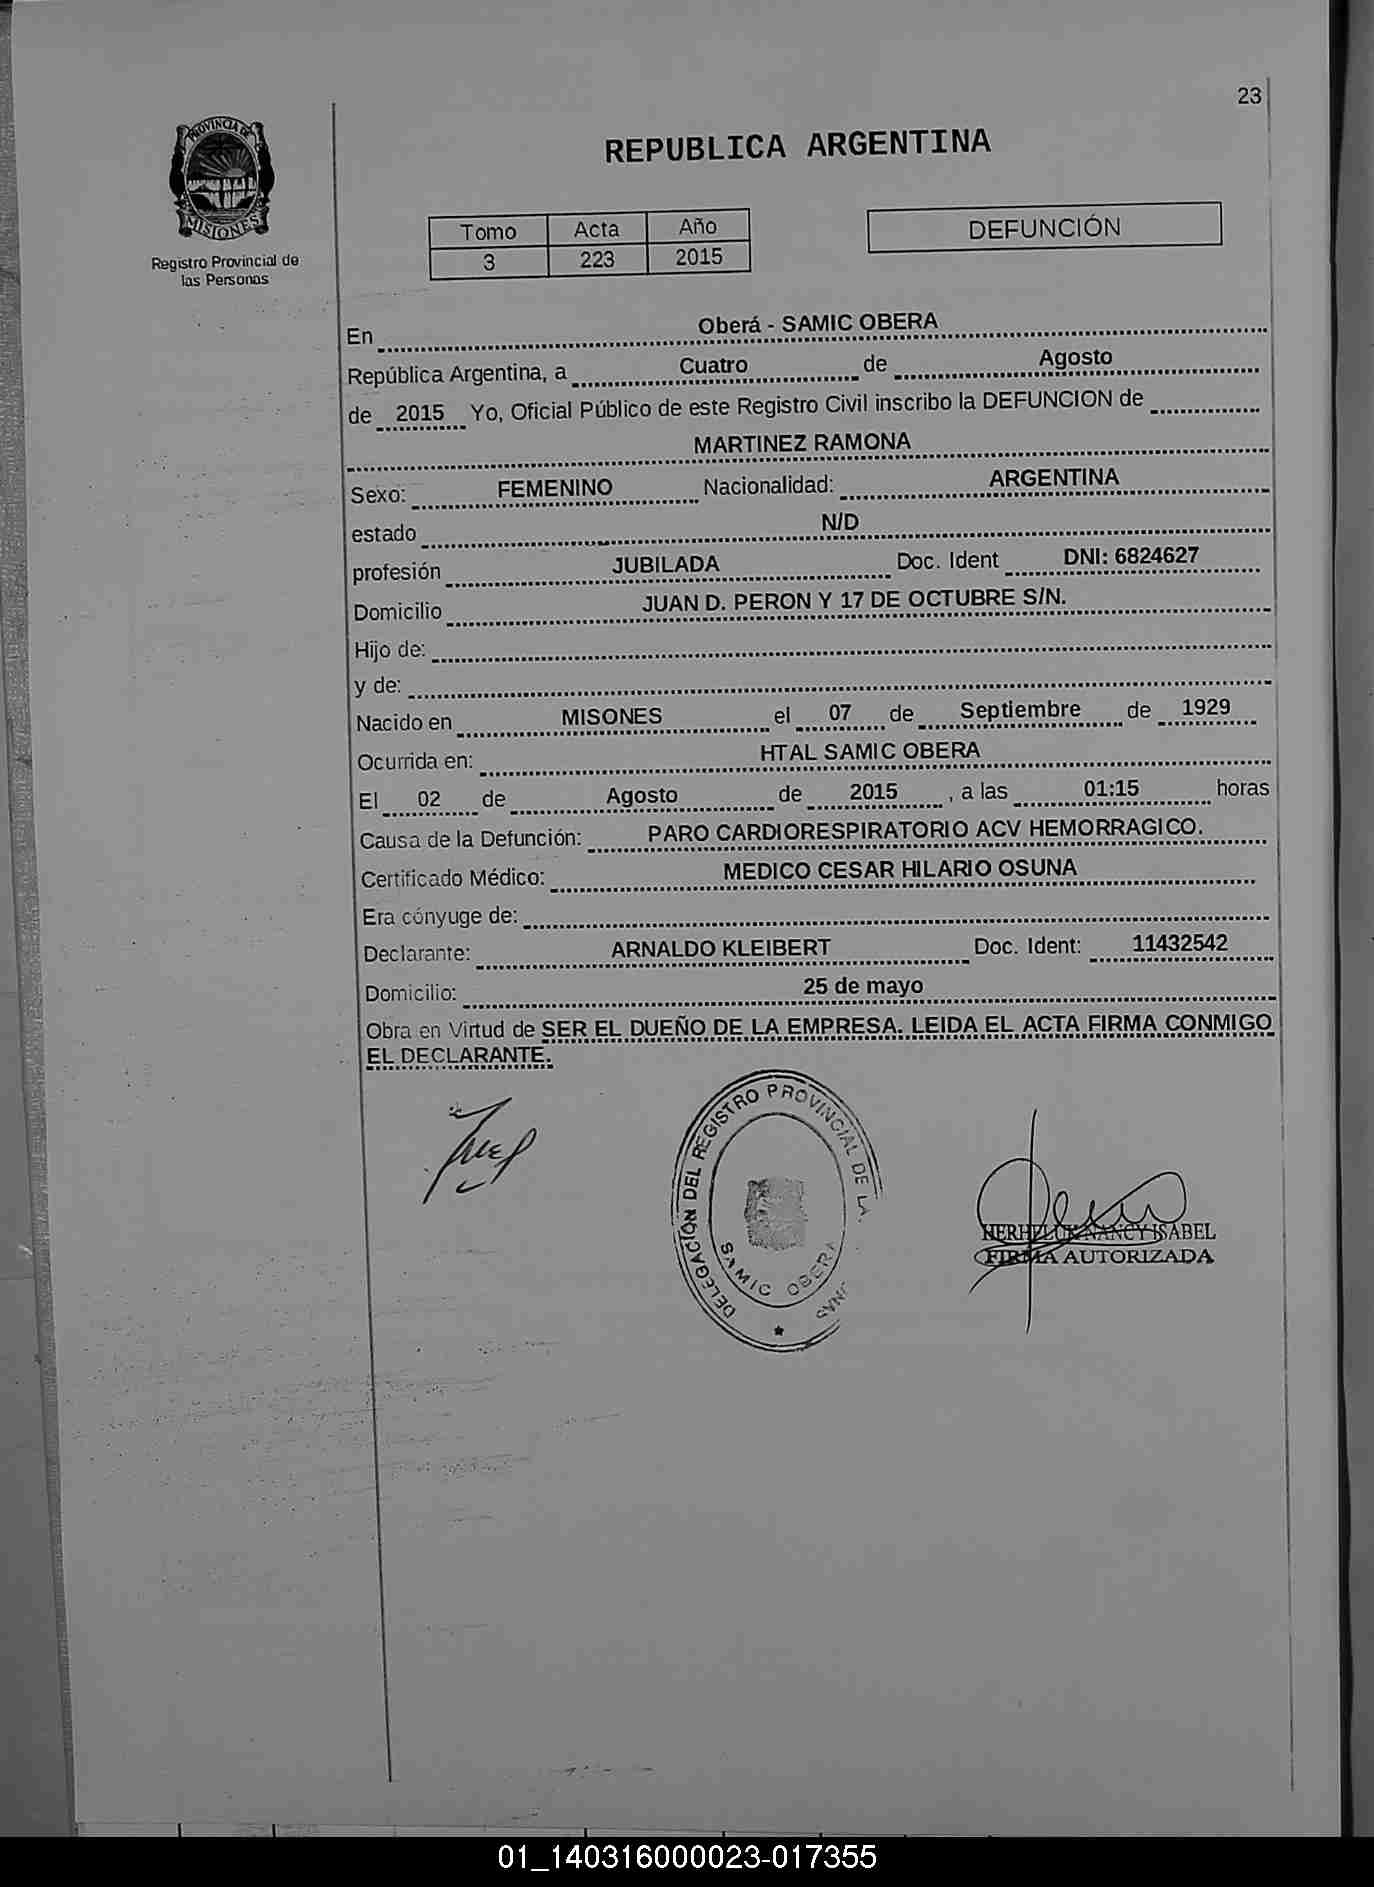 23
PROVINCIA DE
MISIONES
Registro Provincial de
las Personas
REPUBLICA ARGENTINA
Tomo Acta Año
3 223 2015
DEFUNCIÓN
En Oberá - SAMIC OBERA
República Argentina, a Cuatro de Agosto
de 2015 Yo, Oficial Público de este Registro Civil inscribo la DEFUNCION de
MARTINEZ RAMONA
Sexo: FEMENINO Nacionalidad: ARGENTINA
estado N/D
profesión JUBILADA Doc. Ident DNI: 6824627
Domicilio JUAN D. PERON Y 17 DE OCTUBRE S/N.
Hijo de:
y de:
Nacido en MISONES el 07 de Septiembre de 1929
Ocurrida en: HTAL SAMIC OBERA
El 02 de Agosto de 2015 , a las 01:15 horas
Causa de la Defunción: PARO CARDIORESPIRATORIO ACV HEMORRAGICO.
Certificado Médico: MEDICO CESAR HILARIO OSUNA
Era cónyuge de:
Declarante: ARNALDO KLEIBERT Doc. Ident: 11432542
Domicilio: 25 de mayo
Obra en Virtud de SER EL DUEÑO DE LA EMPRESA. LEIDA EL ACTA FIRMA CONMIGO
EL DECLARANTE.
DELEGACIÓN DEL REGISTRO PROVINCIAL DE LA
SAMIC OBERA
NANCY ISABEL
FIRMA AUTORIZADA
01_140316000023-017355